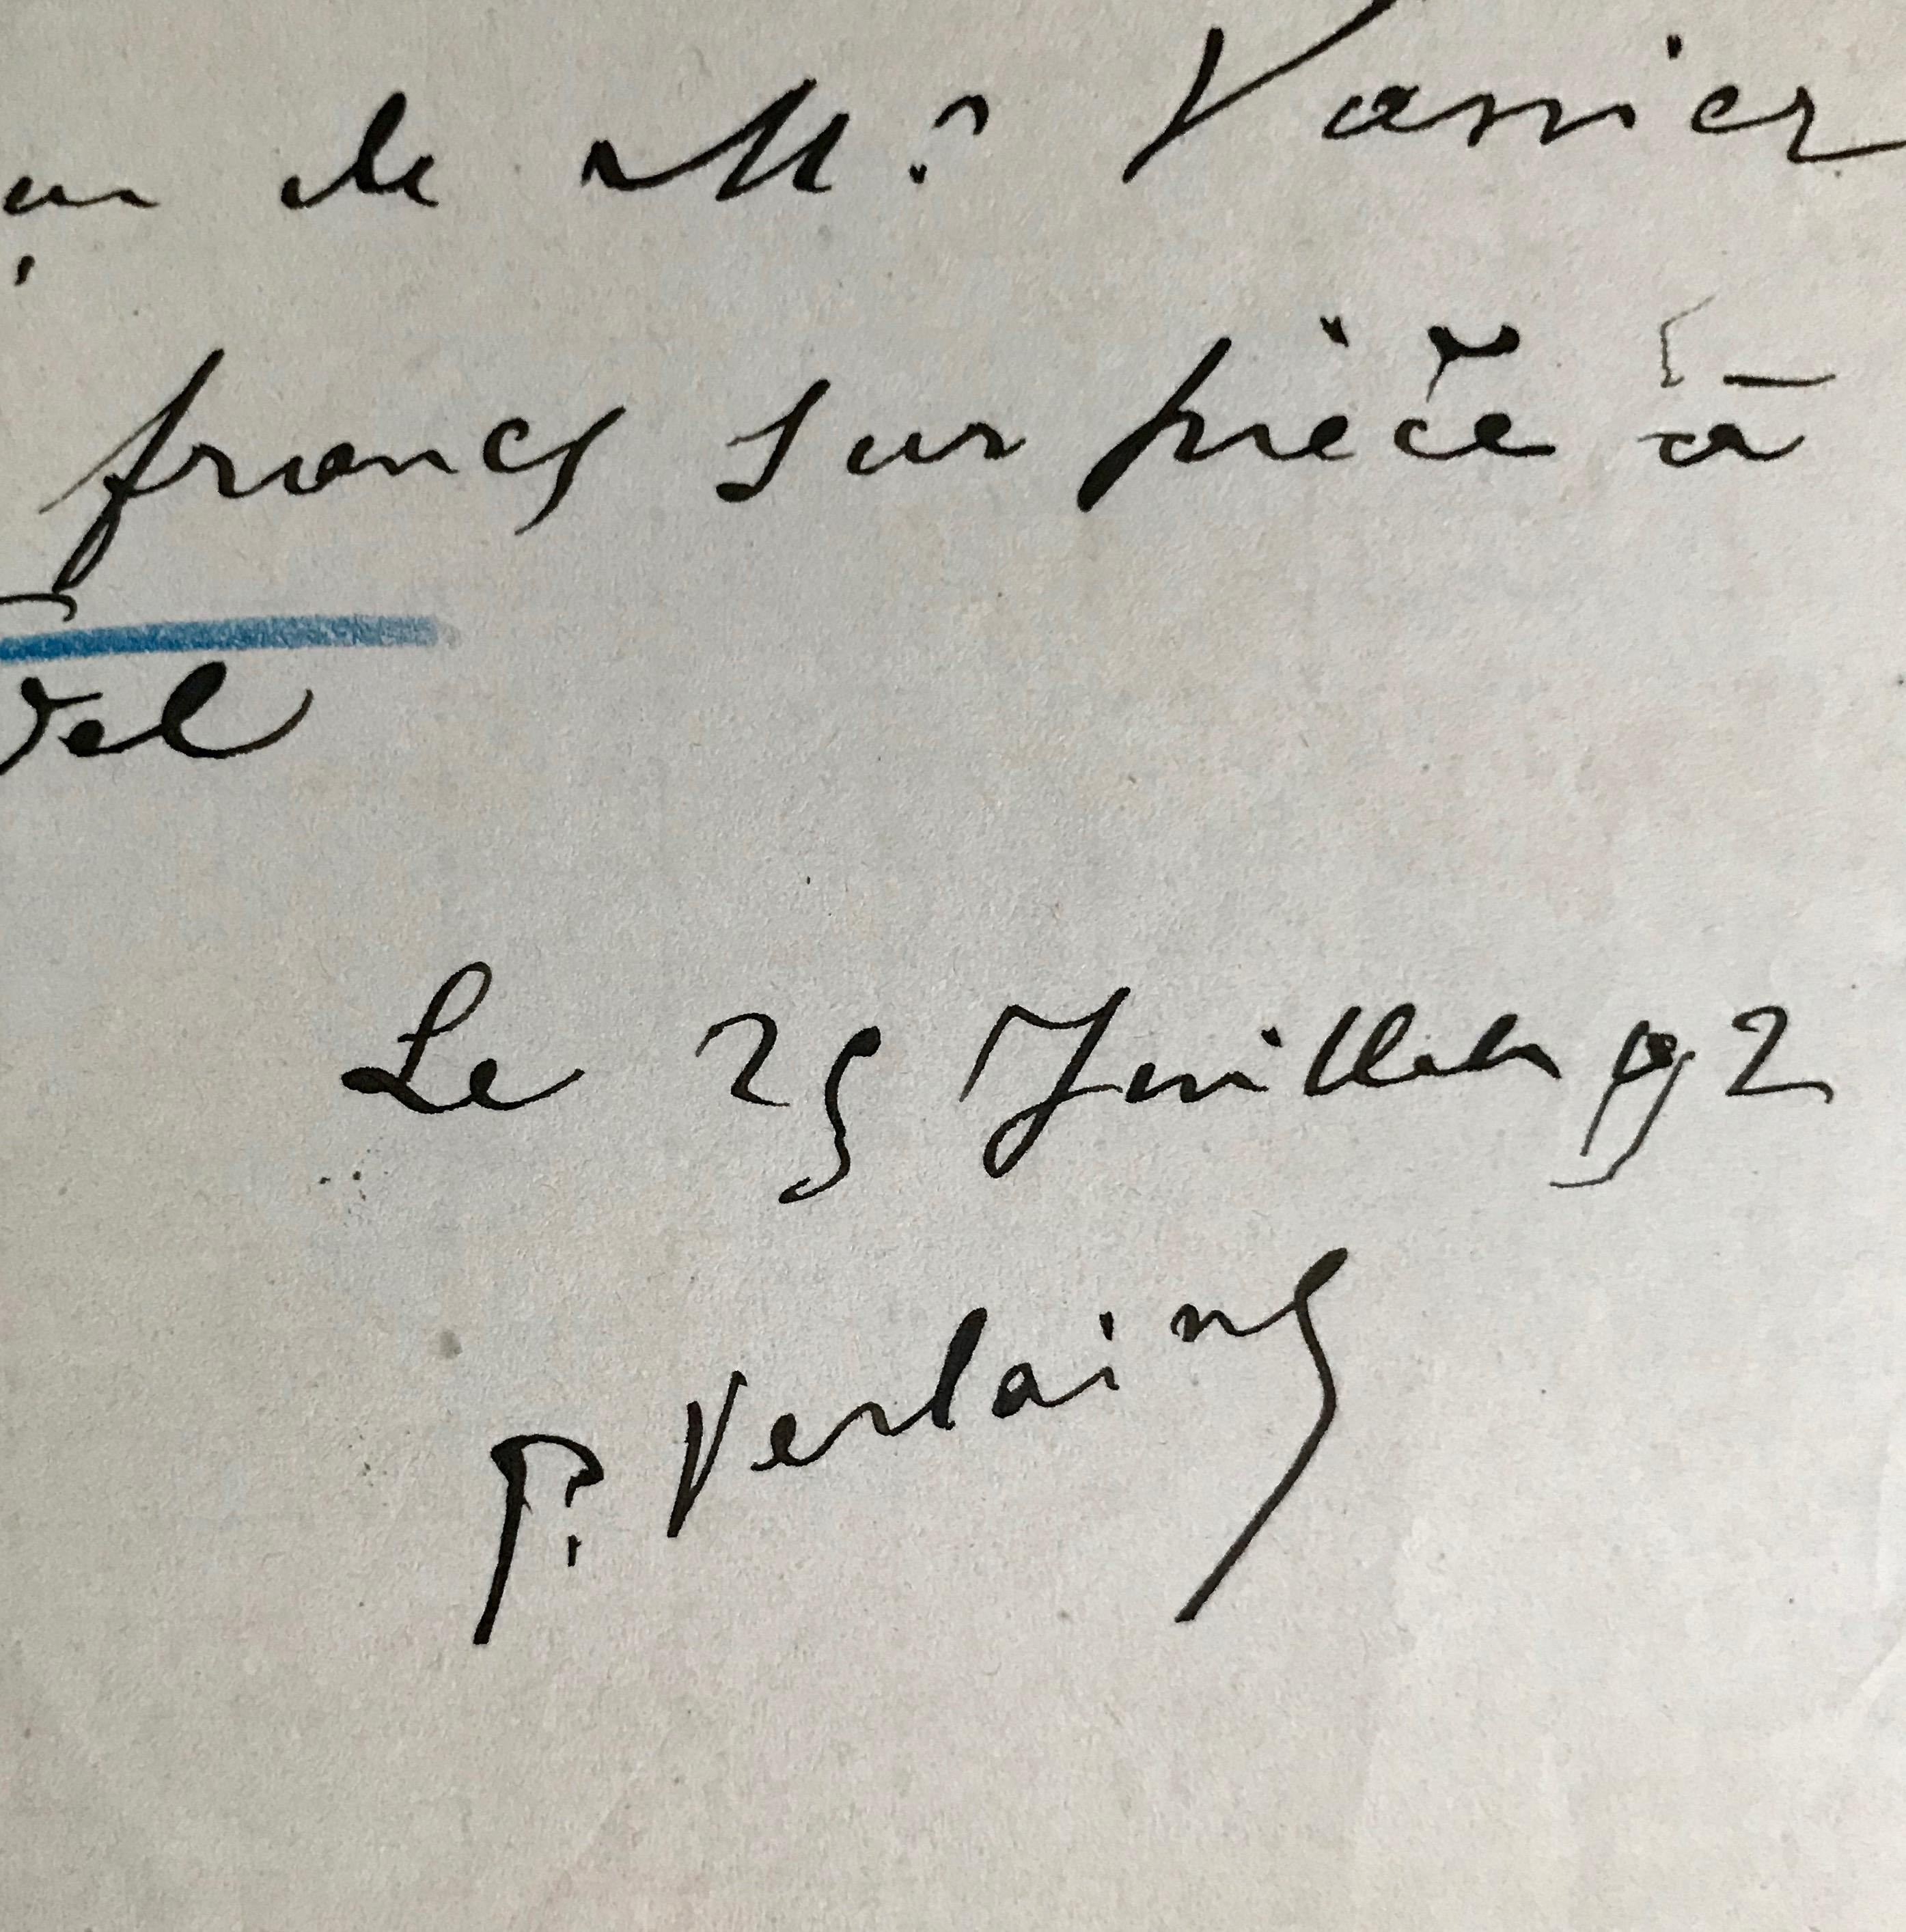 çu de Mr Vanier
francs sur pièce à
Le 29 Juillet 92
P. Verlaine